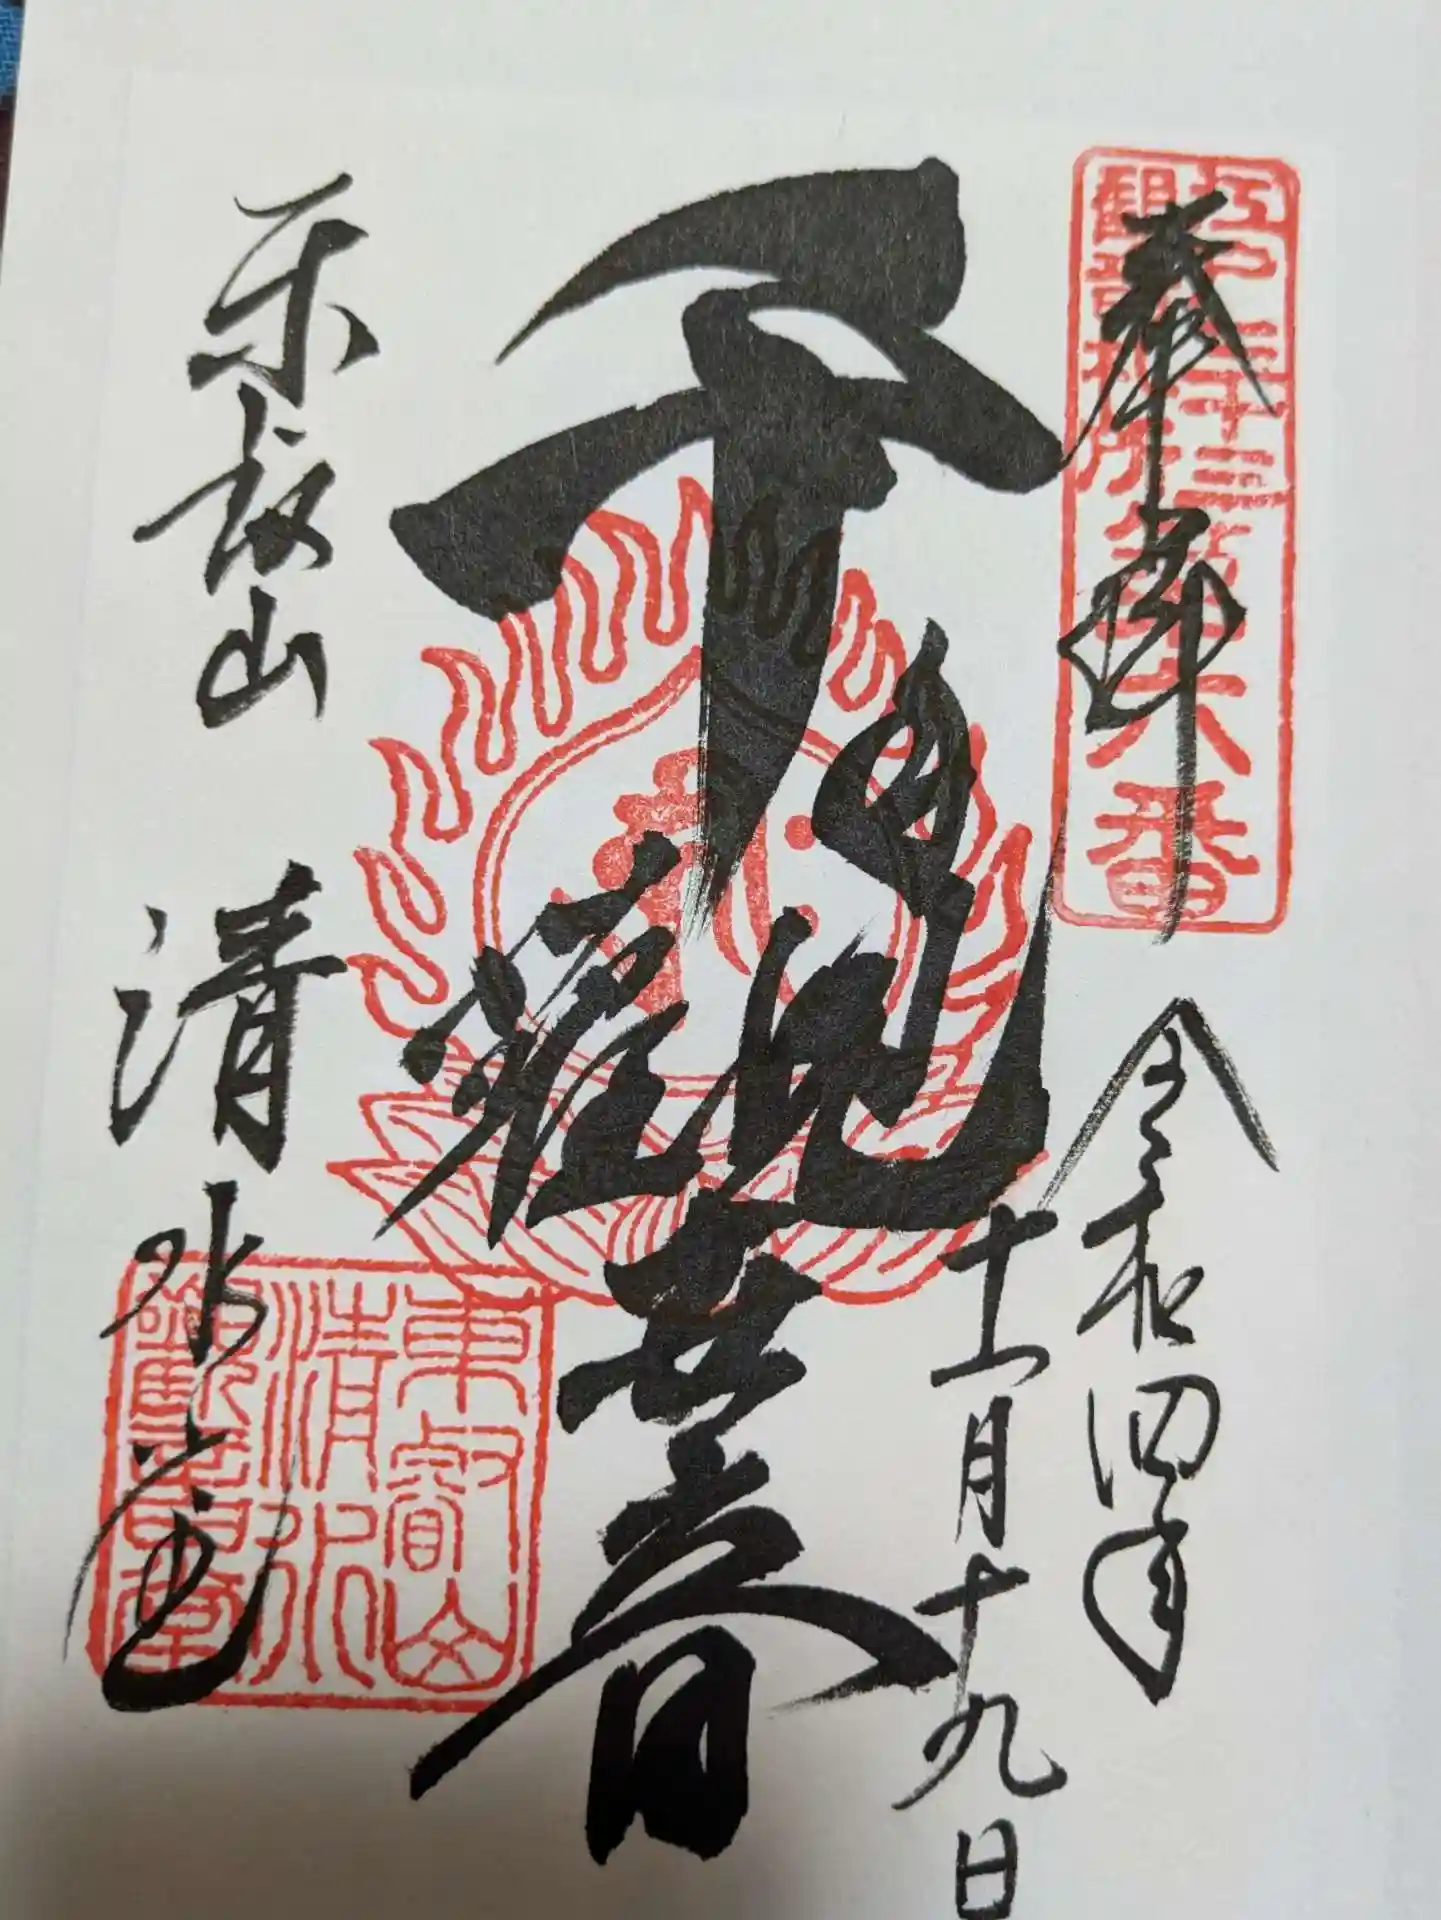 江戸三十三
観音札所
第六番
奉拝
令和四年
十一月十九日
千手觀世音
東叡山 清水堂
東叡山
清水
觀音堂